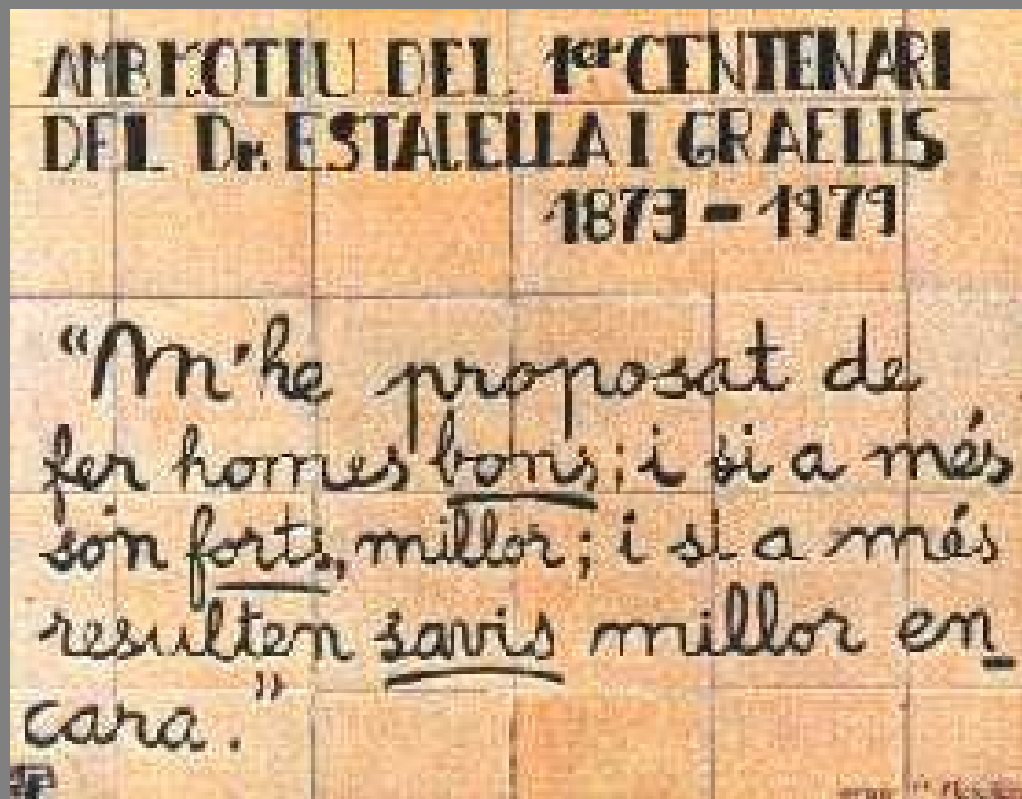 AMB MOTIU DEL 1er CENTENARI
DEL Dr. ESTALELLA I GRAELLS
1873 - 1979
"M'he proposat de
fer homes bons; i si a més
són forts, millor; i si a més
resulten savis millor en-
cara."